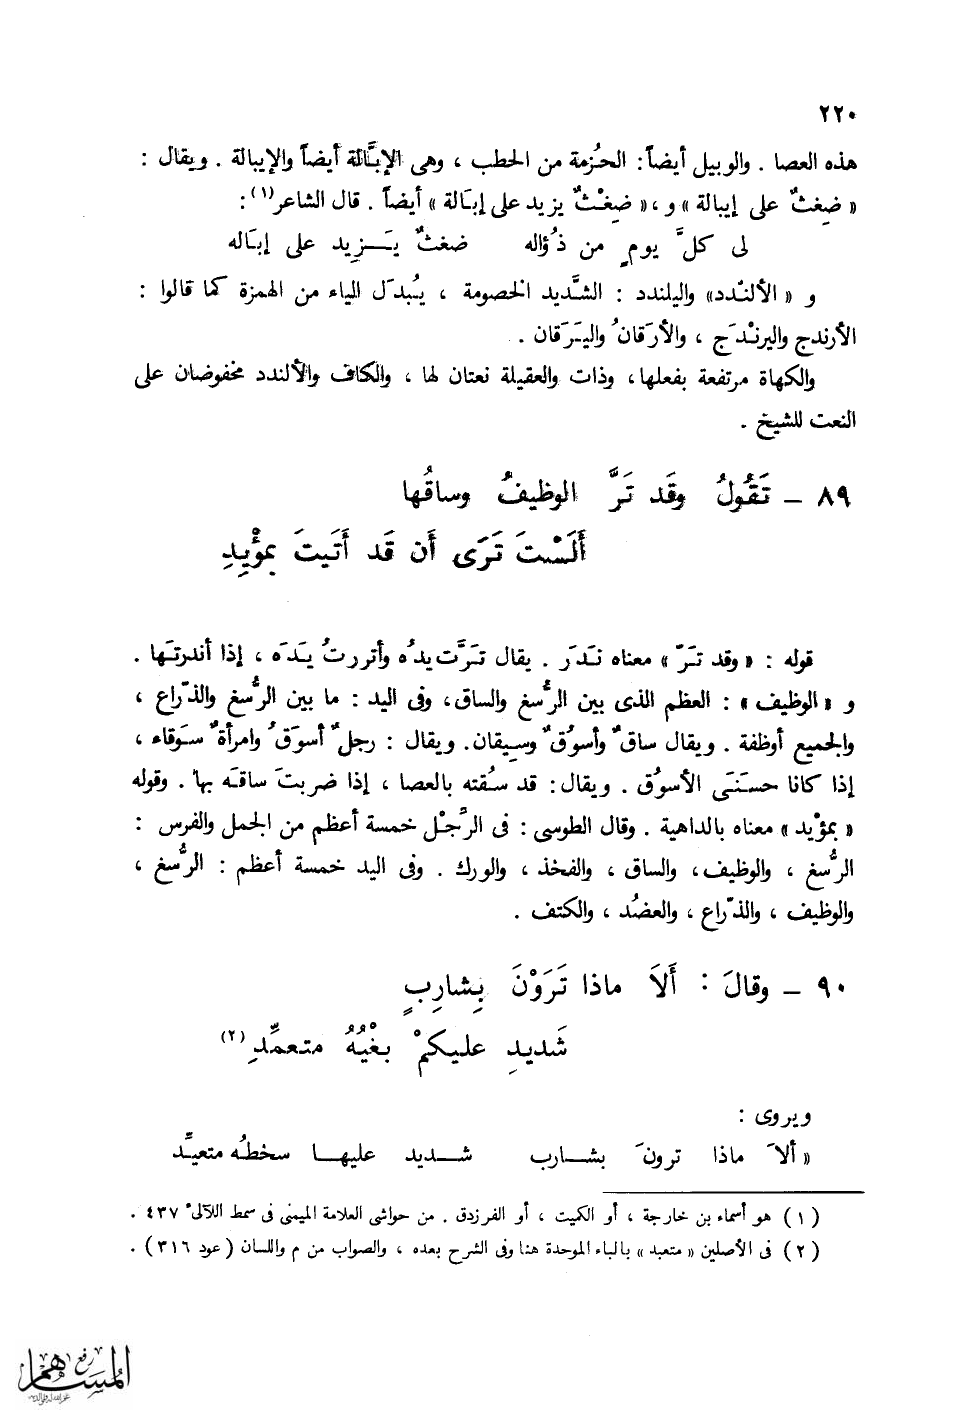 ٢٢٠
هذه العصا . والوبيل أيضاً : الحُزمة من الحطب ، وهى الإبَّالة أيضاً والإيبالة . ويقال :
« ضِغثٌ على إيبالة » و ، « ضِغْثٌ يزيد على إبَالة » أيضاً . قال الشاعر(١) :
لى كلَّ يومٍ من ذُؤاله ضغثٌ يَـــزِيد على إبَاله
و « الألنْدد» واليلندد : الشَّديد الخصومة ، يُبدَل الياء من الهمزة كما قالوا :
الأرندج واليرنْدَج ، والأرَقانُ واليَرَقان .
والكهاة مرتفعة بفعلها، وذات والعقيلة نعتان لها ، والكاف والألندد مخفوضان على
النعت للشيخ .
٨٩ – تَقُولُ وقَد تَرَّ الوظيفُ وساقُها
أَلَسْتَ تَرَى أَن قَد أَتَيتَ بمُؤْيِدِ
قوله : « وقد تَرَّ » معناه نَدَر . يقال تَرَّت يدُه وأتررتُ يَدَه ، إذا أندرتَها .
و « الوظيف » : العظم الذى بين الرُّسغ والساق، وفى اليد : ما بين الرُّسغ والذّراع ،
والجميع أوظفة . ويقال ساقٌ وأسوُقٌ وسِيقان. ويقال : رجلٌ أسوَقُ وامرأةٌ سَوقاء ،
إذا كانا حسَنَى الأسوُق . ويقال : قد سُقته بالعصا ، إذا ضربتَ ساقَه بها . وقوله
« بمؤيد » معناه بالداهية . وقال الطوسى : فى الرِّجْل خمسة أعظم من الجمل والفرس :
الرُّسغ ، والوظيف، والساق ، والفخذ ، والورك . وفى اليد خمسة أعظم : الرُّسغ ،
والوظيف ، والذّراع ، والعضُد ، والكتف .
٩٠ – وقالَ : أَلاَ ماذا تَرَوْنَ بِشارِبٍ
شَديدٍ عليكمْ بغْيُهُ متعمِّدِ(٢)
ويروى :
« ألاَ ماذا ترونَ بشـــارب شـــديد عليهـــا سخطُه متعيِّد
(١) هو أسماء بن خارجة ، أو الكميت ، أو الفرزدق . من حواشى العلامة الميمنى فى سمط اللآلئ ٤٣٧ .
(٢) فى الأصلين « متعبد » بالباء الموحدة هنا وفى الشرح بعده ، والصواب من م واللسان (عود ٣١٦) .